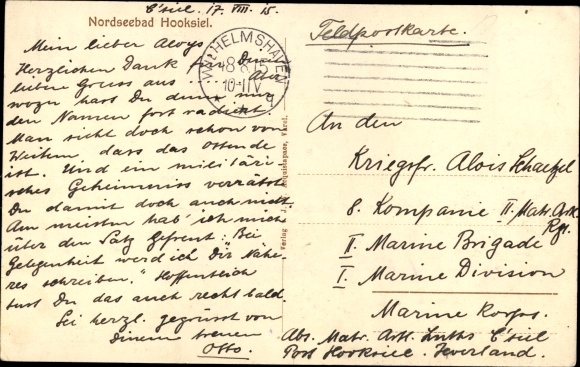 C'siel. 17. VIII. 15.
Nordseebad Hooksiel.
Mein lieber Aloys
Herzlichen Dank für Deine
lieben Gruss aus Aber
wozu hast Du denn nur
den Namen fort radiert.
Man sieht doch schon von
Weitem, dass das Ostende
ist. Und ein militäri-
sches Geheimniss verrätst
Du damit doch auch nicht
Am meisten hab' ich mich
über den Satz gefreut: "Bei
Gelegenheit werd ich Dir Nähe-
res schreiben." Hoffentlich
tust Du das auch recht bald.
Sei herzl. gegrüsst von
Deinem treuen
Otto.
WILHELMSHAVEN
18 8 15
10-11V
Verlag J. Varel.
Feldpostkarte.
An den
Kriegsfr. Alois Schaetzel
8. Kompanie II. Matr. Art.
Rgt.
II. Marine Brigade
I. Marine Division
Marine Korps.
Abs. Matr. Artl. C'siel
Post Hooksiel. Jeverland.